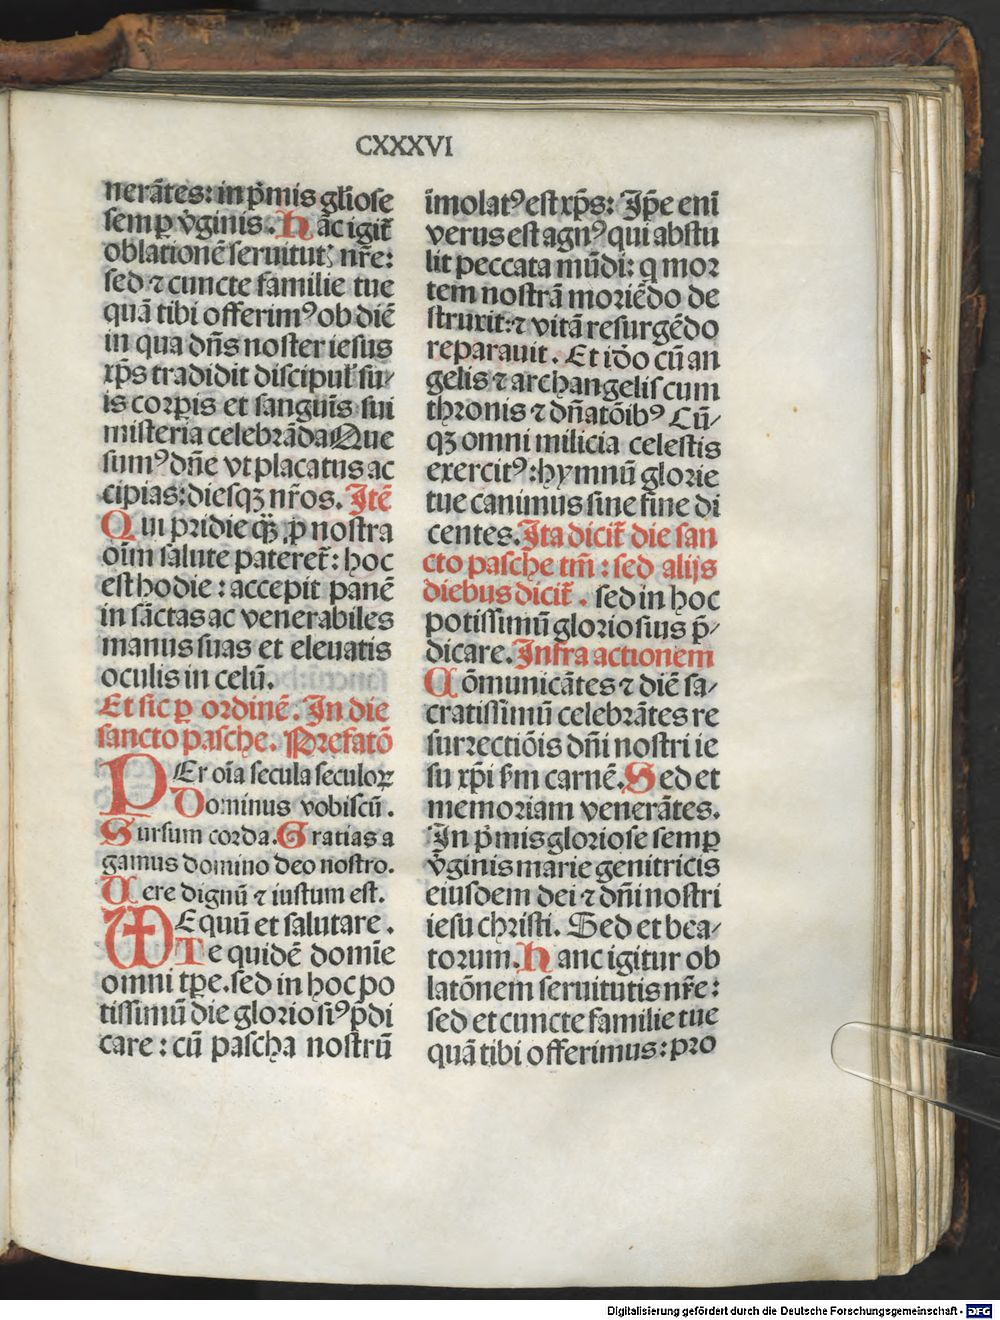 CXXXVI
nerãtes: in p̃mis gl̃iose
semꝑ ṽginis. Hãc igit̃
oblationẽ seruitutꝫ nr̃e:
sed ⁊ cuncte familie tue
quã tibi offerimꝰ ob diẽ
in qua dñs noster iesus
xp̃s tradidit discipul̃ su⸗
is corꝑis et sanguĩs sui
misteria celebrãda Que
sumꝰ dñe vt placatus ac
cipias: diesqꝫ nr̃os. Itẽ
Qui pridie q̃ꝫ ꝓ nostra
oĩm salute pateret̃: hoc
est hodie: accepit panẽ
in sãctas ac venerabiles
manus suas et eleuatis
oculis in celũ.
Et sic ꝑ ordinẽ. In die
sancto pasche. Prefatõ
PEr oĩa secula seculoꝝ
Dominus vobiscũ.
Sursum corda. Gratias a
gamus domino deo nostro.
Uere dignũ ⁊ iustum est.
Equũ et salutare.
Te quidẽ domĩe
omni tꝑe. sed in hoc po
tissimũ die gloriosiꝰ p̃di
care: cũ pascha nostrũ
ĩmolatꝰ est xp̃s: Ip̃e enĩ
verus est agnꝰ qui abstu
lit peccata mũdi: q mor
tem nostrã moriẽdo de
struxit: ⁊ vitã resurgẽdo
reparauit. Et iðo cũ an
gelis ⁊ archangelis cum
thronis ⁊ dñatõibꝰ Cũ⸗
qꝫ omni milicia celestis
exercitꝰ: hymnũ glorie
tue canimus sine fine di
centes. Ita dicit̃ die san
cto pasche tm̃: sed alijs
diebus dicit̃. sed in hoc
potissimũ gloriosius p̃⸗
dicare. Infra actionem
Cõmunicãtes ⁊ diẽ sa⸗
cratissimũ celebrãtes re
surrectiõis dñi nostri ie
su xp̃i sm̃ carnẽ. Sed et
memoriam venerãtes.
In p̃mis gloriose semꝑ
ṽginis marie genitricis
eiusdem dei ⁊ dñi nostri
iesu christi. Sed et bea⸗
torum. Hanc igitur ob
latõnem seruitutis nr̃e:
sed et cuncte familie tue
quã tibi offerimus: pro
Digitalisierung gefördert durch die Deutsche Forschungsgemeinschaft - DFG